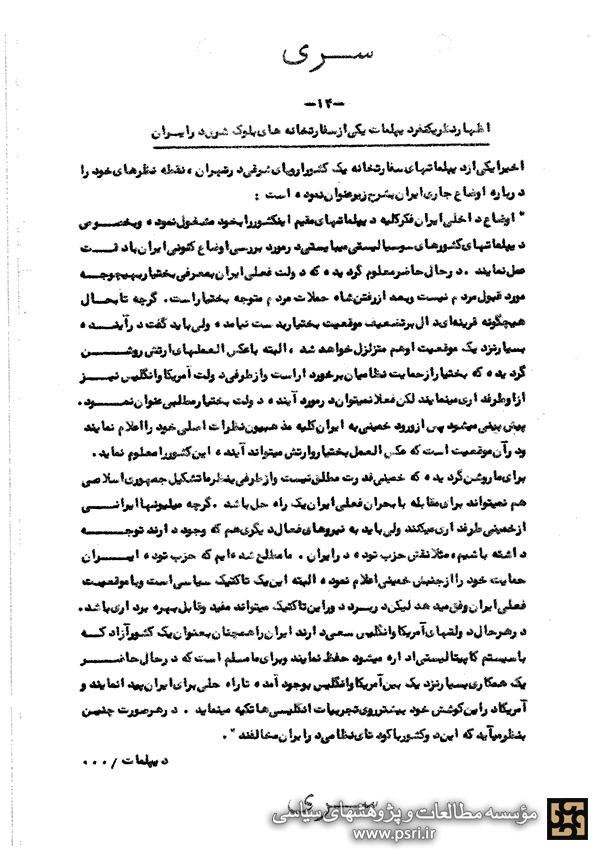 سری
-۱۲-
اظهارنظر یکنفر دیپلمات یکی از سفارتخانه های بلوک شرق در ایران
اخیرا یکی از دیپلماتهای سفارتخانه یک کشور اروپای شرقی در تهران ، نقطه نظرهای خود را
درباره اوضاع جاری ایران بشرح زیر عنوان نموده است :
" اوضاع داخلی ایران فکر کلیه دیپلماتهای مقیم اینکشور را بخود مشغول نموده و بخصوص
دیپلماتهای کشورهای سوسیالیستی میبایستی در مورد بررسی اوضاع کنونی ایران با دقت
عمل نمایند . در حال حاضر معلوم گردیده که دولت فعلی ایران بمعرفی بختیار بهیچوجه
مورد قبول مردم نیست و بعد از رفتن شاه حملات مردم متوجه بختیار است. گرچه تا بحال
هیچگونه قرینه‌ای دال بر تضعیف موقعیت بختیار بدست نیامده ولی باید گفت در آینده
بسیار نزدیک موقعیت او هم متزلزل خواهد شد ، البته با عکس العملهای ارتش روشن
گردیده که بختیار از حمایت نظامیان برخوردار است و از طرفی دولت آمریکا و انگلیس نیز
از او طرفداری مینمایند لکن فعلا نمیتوان در مورد آینده دولت بختیار مطلبی عنوان نمود.
پیش بینی میشود پس از ورود خمینی به ایران کلیه مذهبیون نظرات اصلی خود را اعلام نمایند
و در آن موقعیت است که عکس العمل بختیار و ارتش میتواند آینده این کشور را معلوم نماید.
برای ما روشن گردیده که خمینی قدرت مطلق نیست و از طرفی بنظر ما تشکیل جمهوری اسلامی
هم نمیتواند برای مقابله با بحران فعلی ایران یک راه حل باشد . گرچه میلیونها ایرانی
از خمینی طرفداری میکنند ولی باید به نیروهای فعال دیگری هم که وجود دارند توجه
داشته باشیم ، مثلا نقش حزب توده در ایران . ما مطلع شده‌ایم که حزب توده ایران
حمایت خود را از جنبش خمینی اعلام نموده البته این یک تاکتیک سیاسی است و با موقعیت
فعلی ایران وفق میدهد لیکن در برد دور این تاکتیک میتواند مفید و قابل بهره برداری باشد.
در هر حال دولتهای آمریکا و انگلیس سعی دارند ایران را همچنان بعنوان یک کشور آزاد که
با سیستم کاپیتالیستی اداره میشود حفظ نمایند و برای ما مسلم است که در حال حاضر
یک همکاری بسیار نزدیک بین آمریکا و انگلیس بوجود آمده تا راه حلی برای ایران پیدا نمایند و
آمریکا در این کوشش خود بیشتر روی تجربیات انگلیسی ها تکیه مینماید . در هر صورت چنین
بنظر میآید که این دو کشور با کودتای نظامی در ایران مخالفند " .
دیپلمات / ۰۰۰
سری
مؤسسه مطالعات و پژوهشهای سیاسی
www.psri.ir